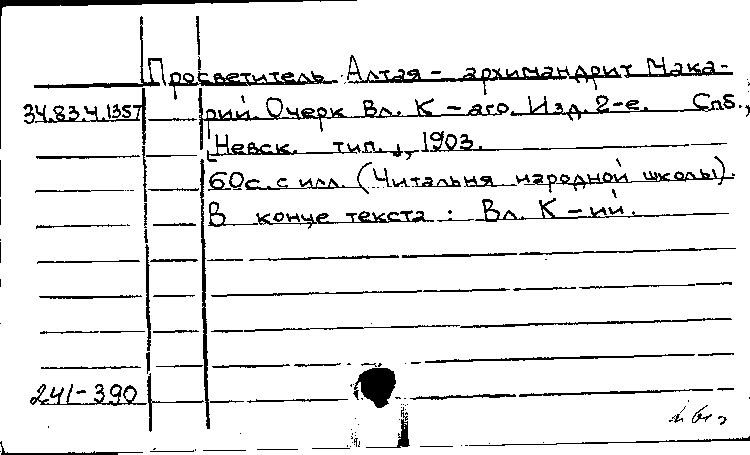 Просветитель Алтая - архимандрит Мака-
34.83.4.1357 рий. Очерк Вл. К - аго. Изд. 2-е. Спб.,
[Невск. тип.], 1903.
60с. с илл. (Читальня народной школы).
В конце текста: Вл. К - ий.
241-390